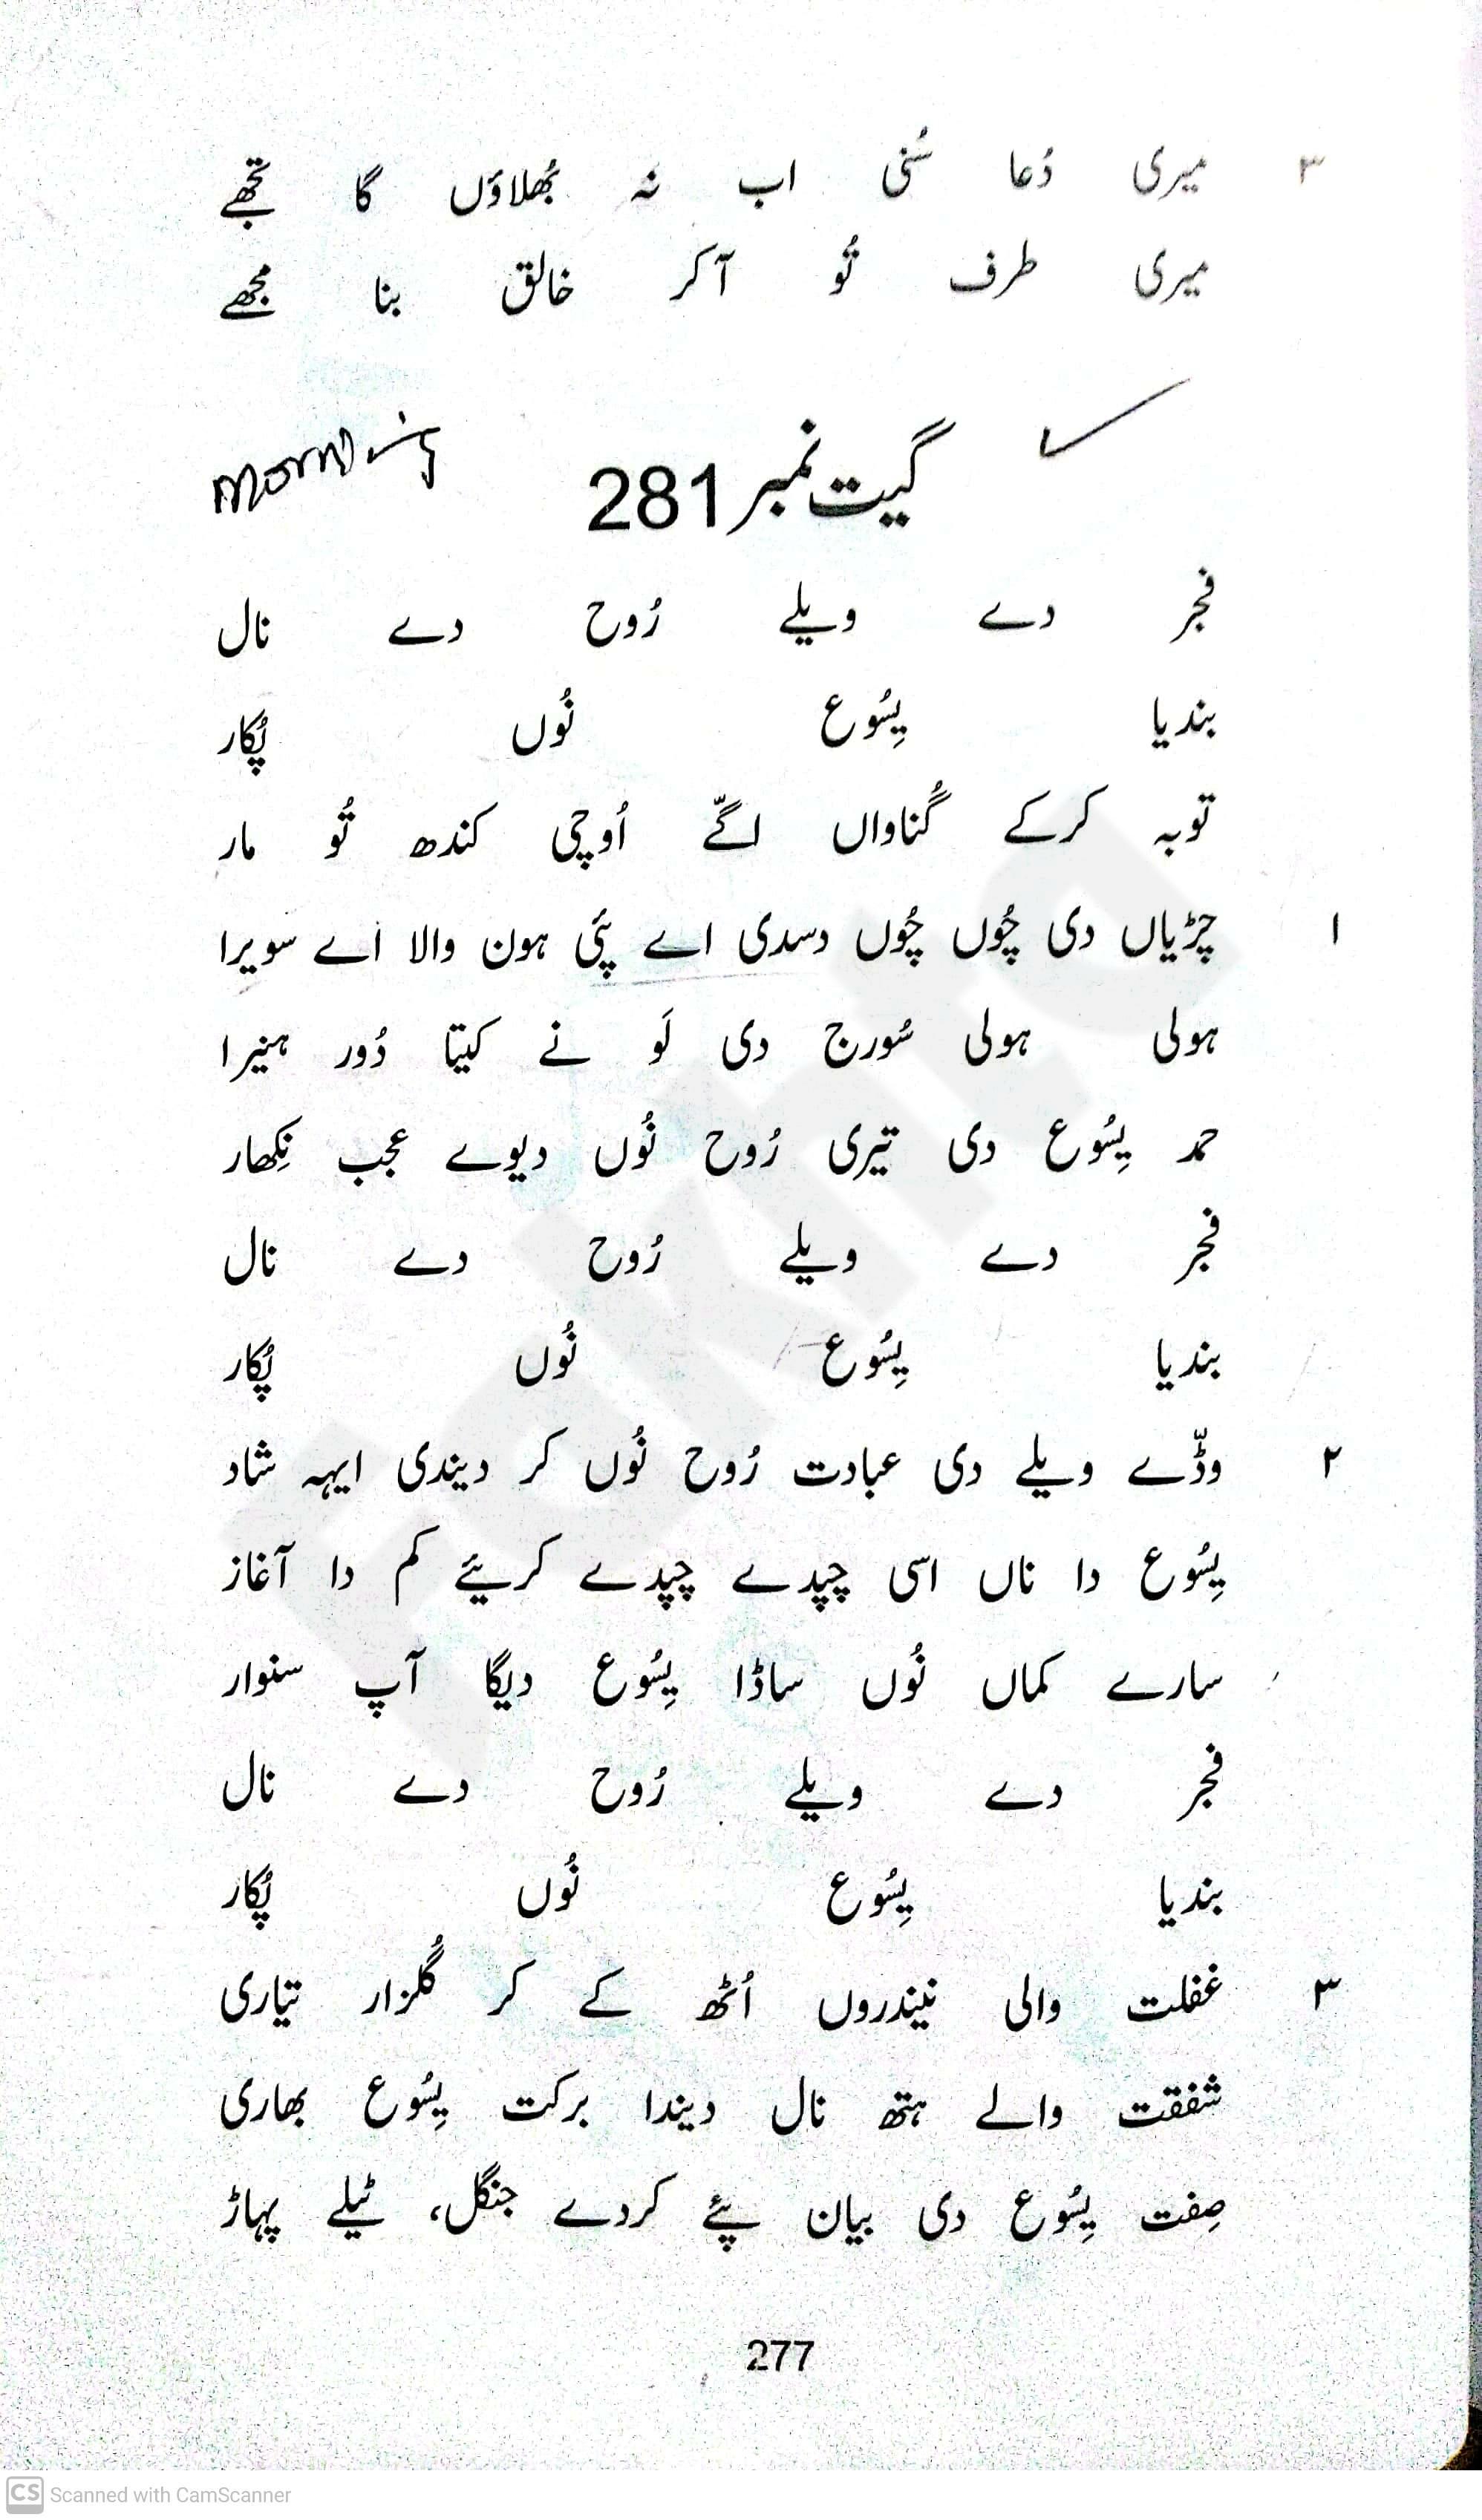 ۳ میری دُعا سُنی اب نہ بُھلاؤں گا تجھے
میری طرف تُو آ کر خالق بنا مجھے
گیت نمبر 281
Morning
فجر دے ویلے رُوح دے نال
بندیا یِسُوع نُوں پُکار
توبہ کرکے گُناواں اگّے اُوچی کندھ تُو مار
۱ چڑیاں دی چُوں چُوں دسدی اے پئی ہون والا اے سویرا
ہولی ہولی سُورج دی لَو نے کیتا دُور ہنیرا
حمد یِسُوع دی تیری رُوح نُوں دیوے عجب نِکھار
فجر دے ویلے رُوح دے نال
بندیا یِسُوع نُوں پُکار
۲ وڈّے ویلے دی عبادت رُوح نُوں کر دیندی ایہہ شاد
یِسُوع دا ناں اسی چپدے چپدے کریئے کم دا آغاز
سارے کماں نُوں ساڈا یِسُوع دیگا آپ سنوار
فجر دے ویلے رُوح دے نال
بندیا یِسُوع نُوں پُکار
۳ غفلت والی نیندروں اُٹھ کے کر گُلزار تیاری
شفقت والے ہتھ نال دیندا برکت یِسُوع بھاری
صِفت یِسُوع دی بیان پئے کردے جنگل، ٹیلے پہاڑ
277
CS Scanned with CamScanner